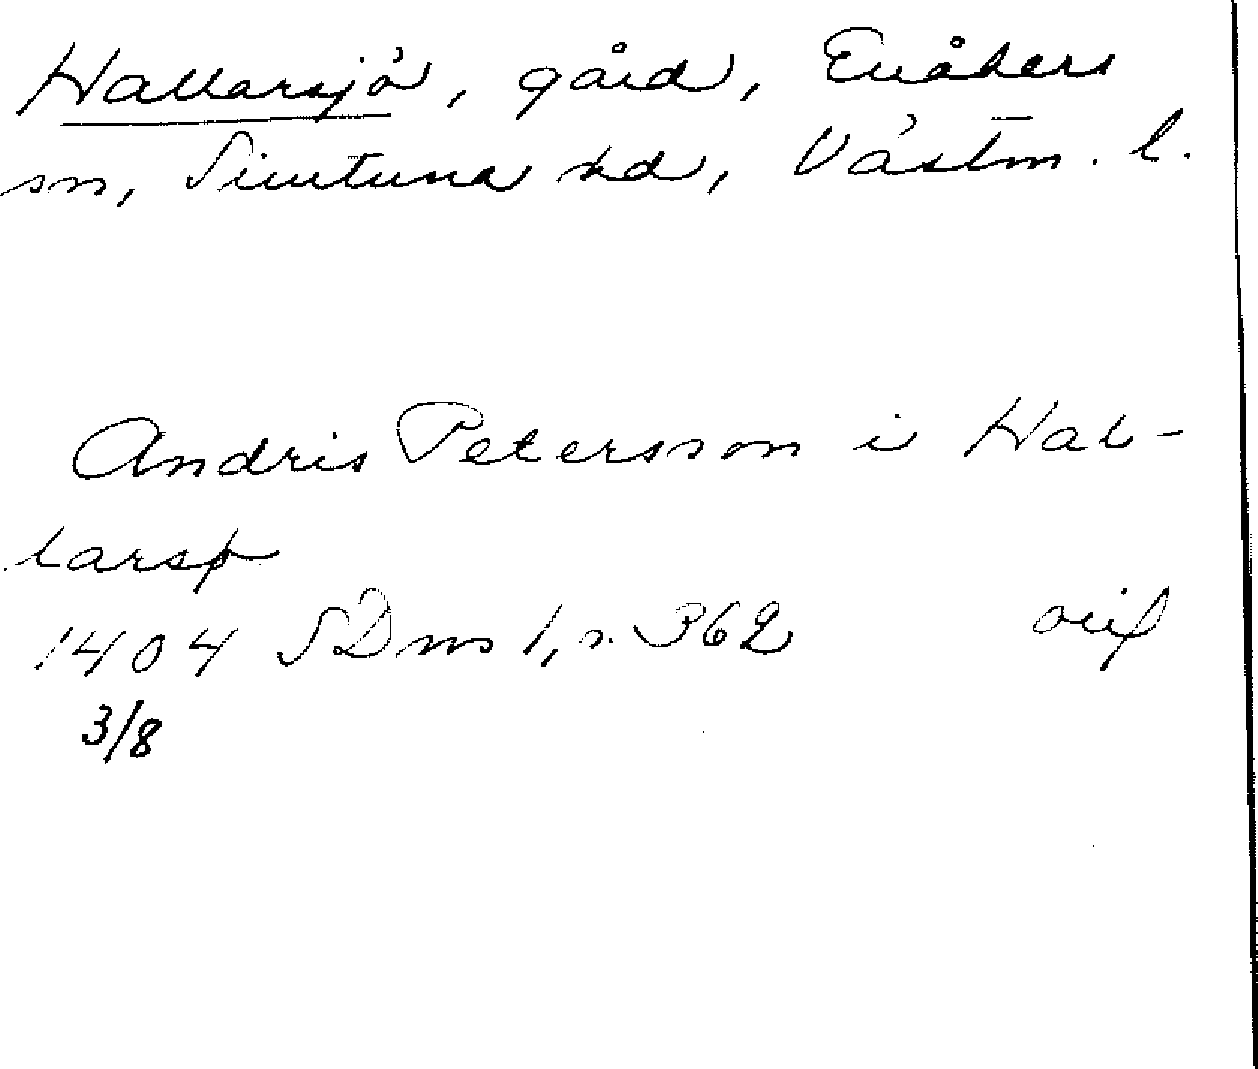 Hallarsjö, gård, Enåkers
sn, Simtuna hd, Västm. l.
Andris Petersson i Hal-
larsp
1404 SDns 1, s. 362
3/8